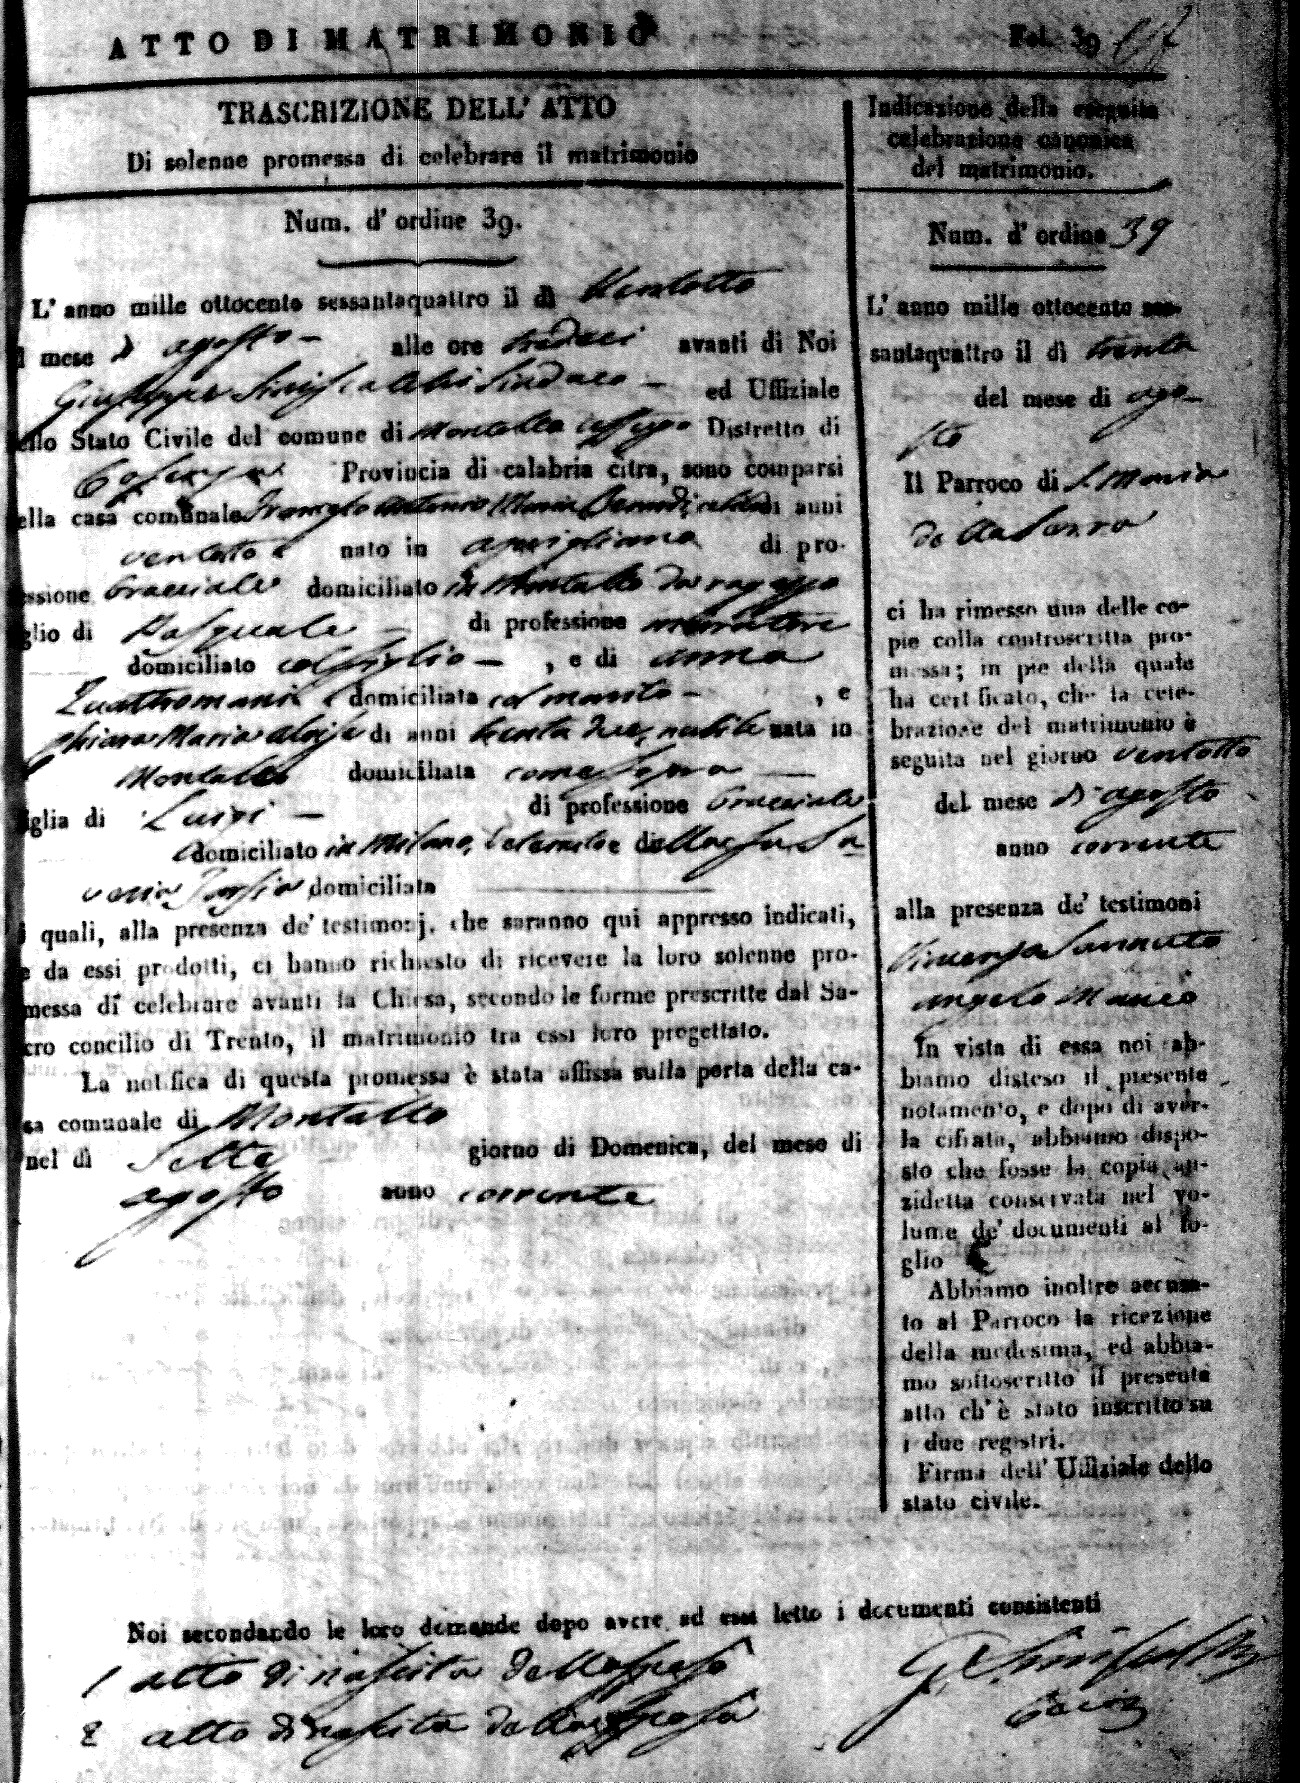 ATTO DI MATRIMONIO
Fol. 39
TRASCRIZIONE DELL' ATTO
Di solenne promessa di celebrare il matrimonio
Num. d' ordine 39.
L' anno mille ottocento sessantaquattro il dì Ventotto
l mese d agosto - alle ore tredeci avanti di Noi
Giuseppe Siniscalchi Sindaco - ed Uffiziale
ello Stato Civile del comune di Montalto Uffugo Distretto di
Cosenza Provincia di calabria citra, sono comparsi
ella casa comunale Antonio Maria di anni
ventotto nato in Aprigliano di pro-
essione bracciale domiciliato in Montalto da ragazzo
glio di Pasquale - di professione muratore
domiciliato col figlio - , e di Anna
Quattromani domiciliata col marito - , e
Chiara Maria Aloise di anni trenta due, nubile nata in
Montalto domiciliata come sopra
iglia di Luigi - di professione bracciale
domiciliato in Milano, e di
domiciliata
i quali, alla presenza de' testimonj, che saranno qui appresso indicati,
e da essi prodotti, ci hanno richiesto di ricevere la loro solenne pro-
messa di celebrare avanti la Chiesa, secondo le forme prescritte dal Sa-
cro concilio di Trento, il matrimonio tra essi loro progettato.
La notifica di questa promessa è stata affissa sulla porta della ca-
sa comunale di Montalto
nel dì Sette giorno di Domenica, del mese di
agosto anno corrente
Indicazione della eseguita
celebrazione canonica
del matrimonio.
Num. d' ordine 39
L' anno mille ottocento ses-
santaquattro il dì trenta
del mese di ago-
sto
Il Parroco di S. Maria
della Serra
ci ha rimesso una delle co-
pie colla controscritta pro-
messa; in piè della quale
ha certificato, che la cele-
brazione del matrimonio è
seguita nel giorno ventotto
del mese di agosto
anno corrente
alla presenza de' testimoni
Vincenzo Sannuto
Angelo Mauro
In vista di essa noi ab-
biamo disteso il presente
notamento, e dopo di aver-
la cifrata, abbiamo dispo-
sto che fosse la copia an-
zidetta conservata nel vo-
lume de' documenti al fo-
glio
Abbiamo inoltre accusa-
to al Parroco la ricezione
della medesima, ed abbia-
mo sottoscritto il presente
atto ch' è stato inscritto su
i due registri.
Firma dell' Uffiziale dello
stato civile.
Noi secondando le loro domande dopo avere ad essi letto i documenti consistenti
1 atto di nascita dello sposo
2 atto di nascita della sposa
G. Siniscalchi